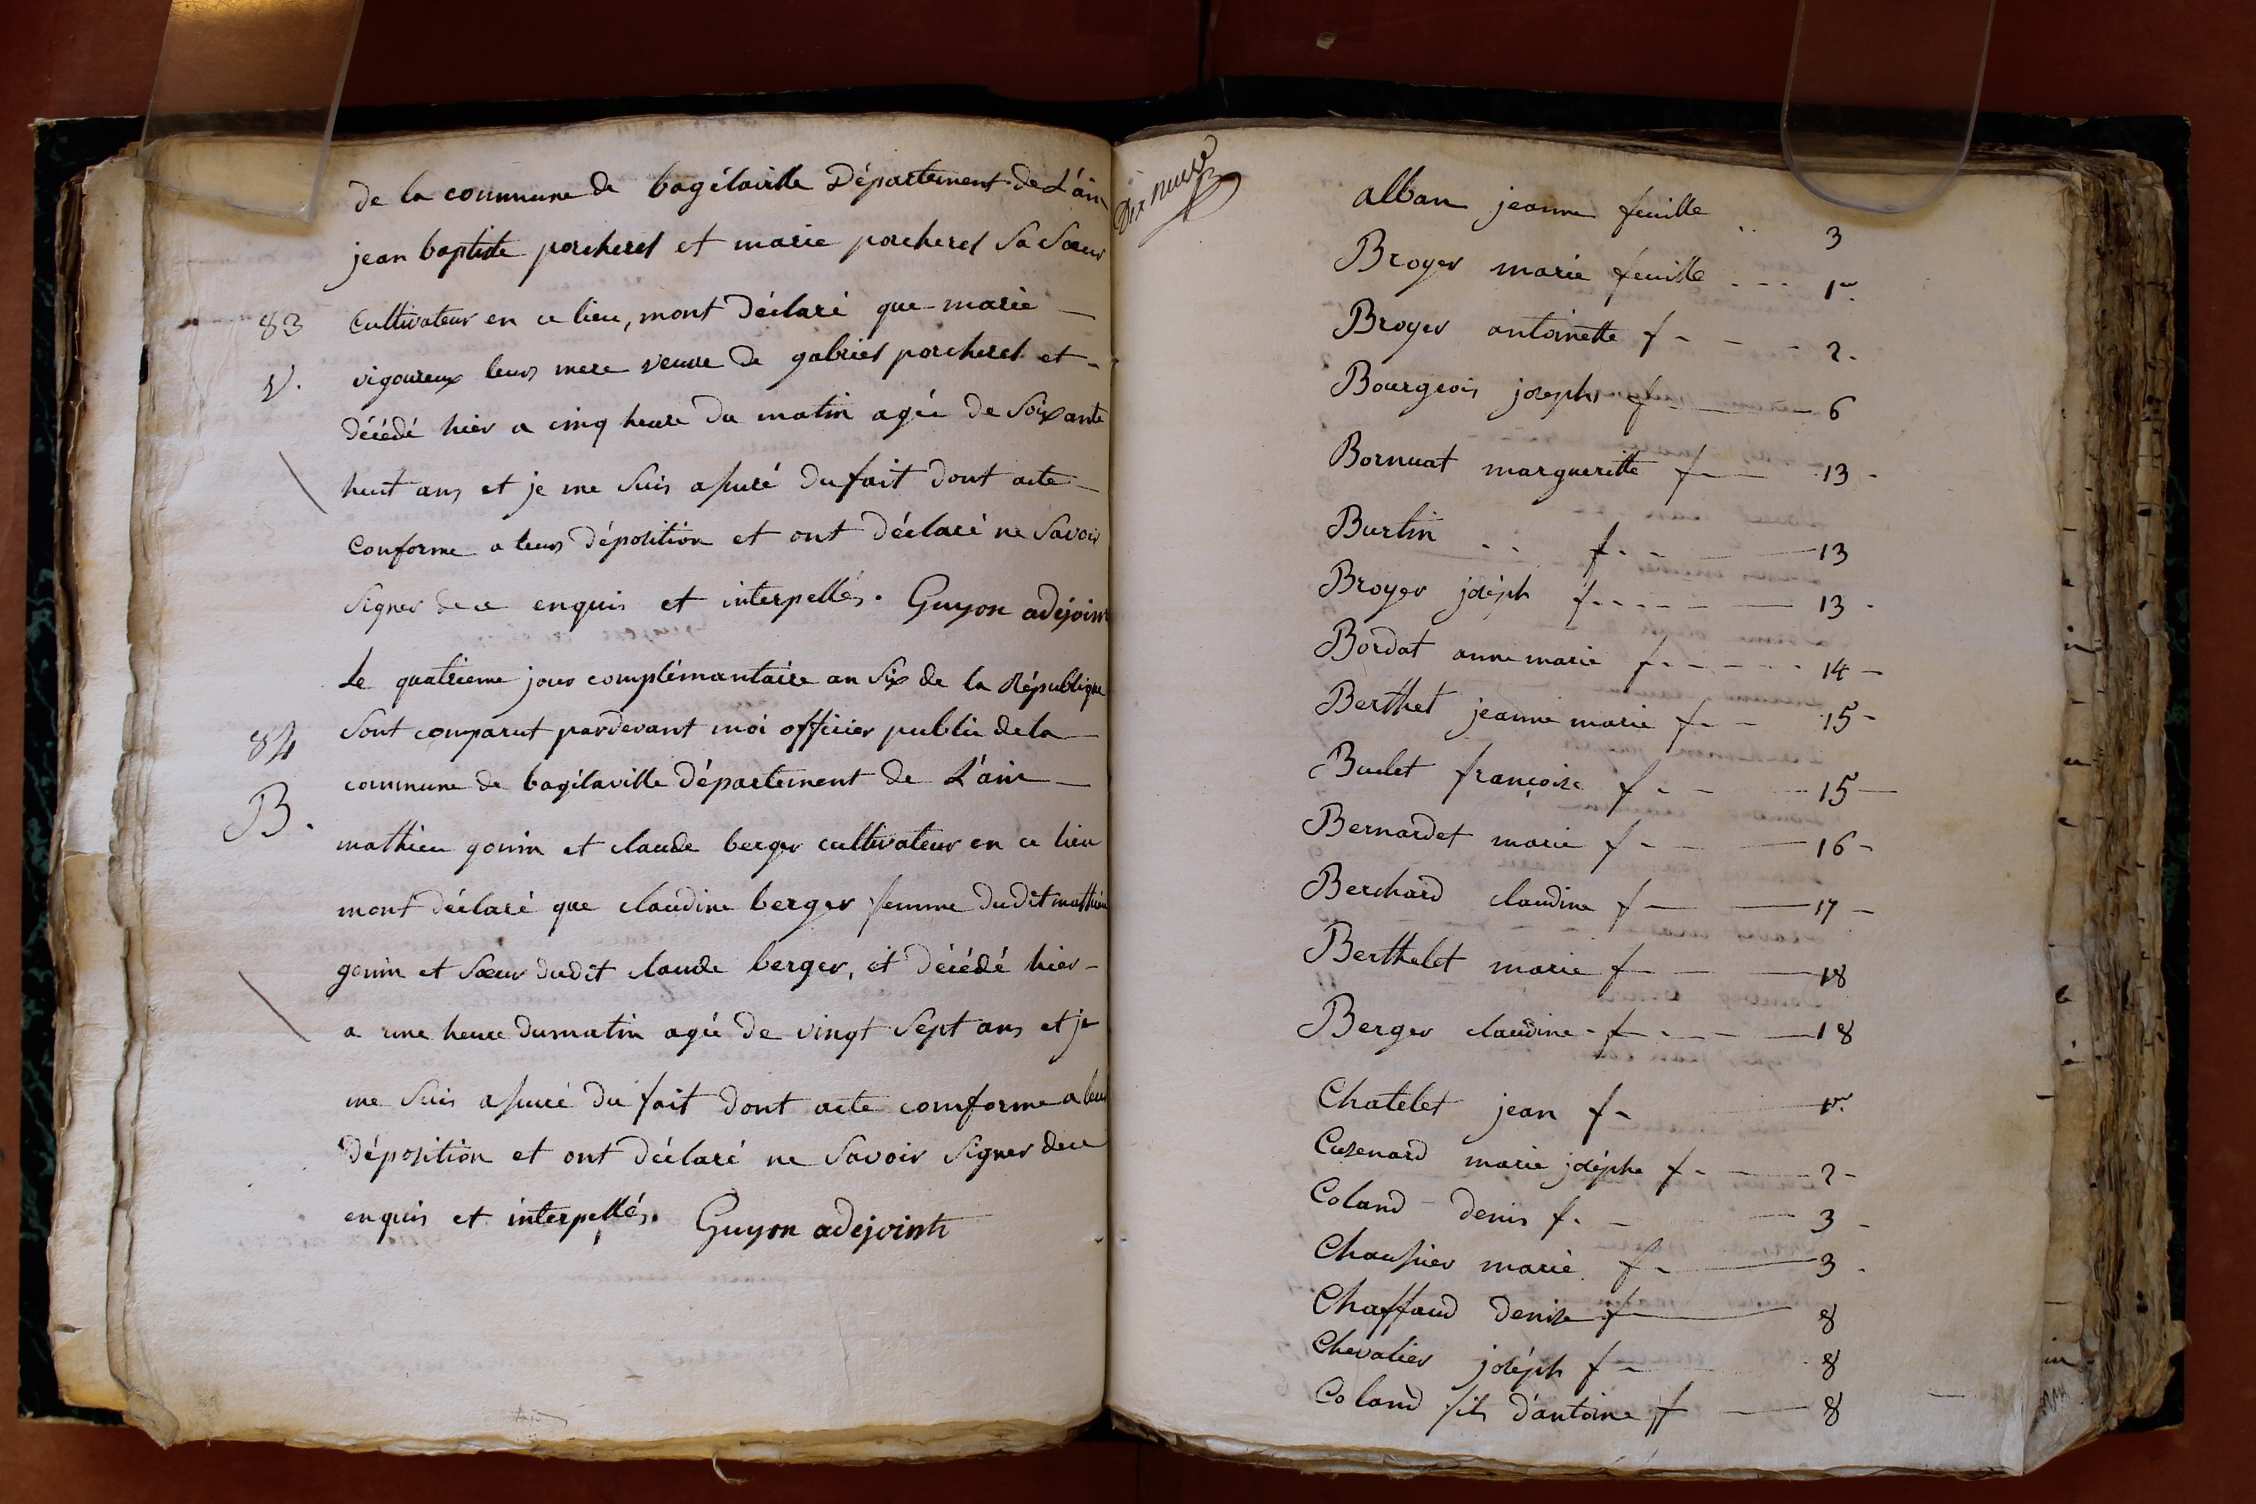 de la commune de bagélaville Département de L'ain
jean baptiste porcherel et marie porcherel Sa Sœur
83
Cultivateur en ce lieu, mont Déclaré que marie
V.
vigoureux leurs mere veuve de gabriel porcherel et
décédé hier a cinq heure du matin agée de Soixante
huit ans et je me Suis assuré du fait dont acte
Conforme a leurs déposition et ont déclaré ne Savoir
Signer de ce enquis et interpellés. Guyon adejoint
Le quatrieme jour complémantaire an Six de la République
84
Sont comparut pardevant moi officier public de la
commune de bagélaville département de L'ain
B.
mathieu gonin et claude berger cultivateur en ce lieu
mont déclaré que claudine berger femme dudit mathieu
gonin et Sœur dudit claude berger, et décédé hier
a une heure dumatin agée de vingt Sept ans et je
me Suis assuré du fait dont acte comforme a leurs
déposition et ont déclaré ne Savoir Signer de ce
enquis et interpellés. Guyon adejoinh
Dix neuve
alban jeanne feuille .. 3
Broyer marie feuille ... 1er
Broyer antoinette f - - - 2.
Bourgeois joseph f - 6
Bornuat margueritte f - 13 -
Burtin .. f. - 13
Broyer joséph f - - - 13 -
Bordat anne marie f - - - 14 -
Berthet jeanne marie f - - 15 -
Budet françoise f - - 15 -
Bernardet marie f - - 16 -
Berchard claudine f - 17 -
Berthelet marie f - - 18
Berger claudine - f - - 18
Chatelet jean f - 1er
Cusenard marie joséphe f - 2 -
Coland denis f. - 3 -
Chaussier marie f - 3 -
Chaffaud denise f - 8
Chevalier joséph f - 8
Coland fils d'antoine f - 8